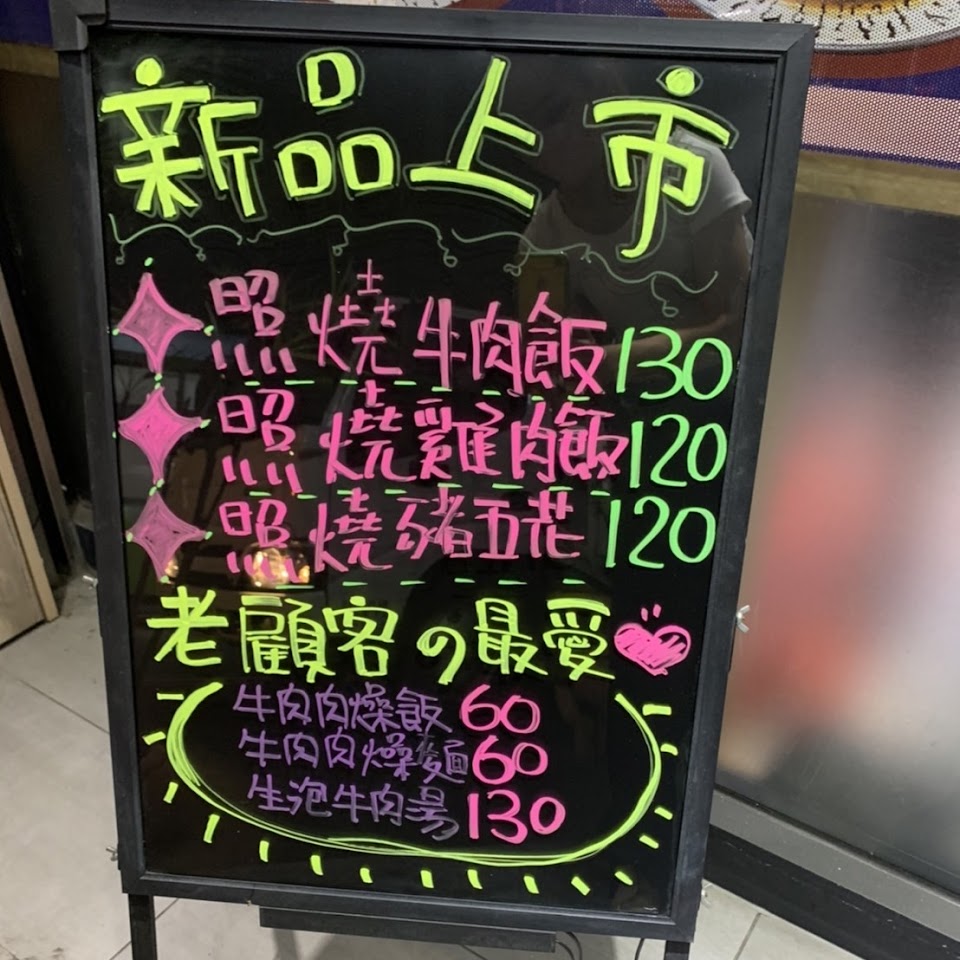 新品上市
照燒牛肉飯130
照燒雞肉飯120
照燒豬五花120
老顧客の最愛
牛肉肉燥飯60
牛肉肉燥麵60
生泡牛肉湯130